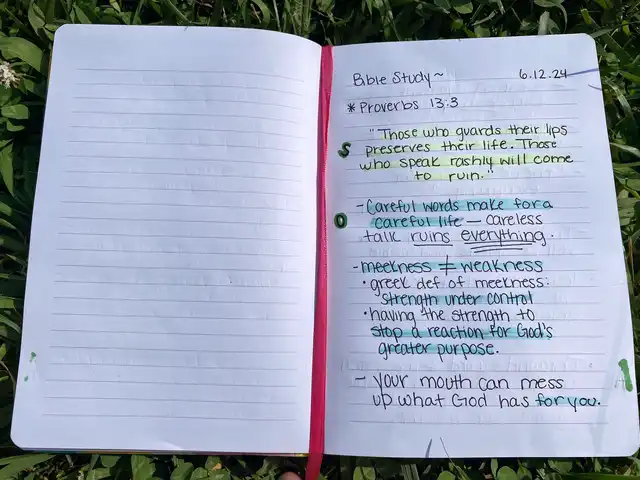 Bible Study~ 6.12.24
* Proverbs 13:3
"Those who guards their lips
S preserves their life. Those
who speak rashly will come
to ruin."
- Careful words make for a
O careful life — careless
talk ruins everything.
- meekness ≠ weakness
• greek def of meekness:
strength under control
• having the strength to
stop a reaction for God's
greater purpose.
- your mouth can mess
up what God has for you.